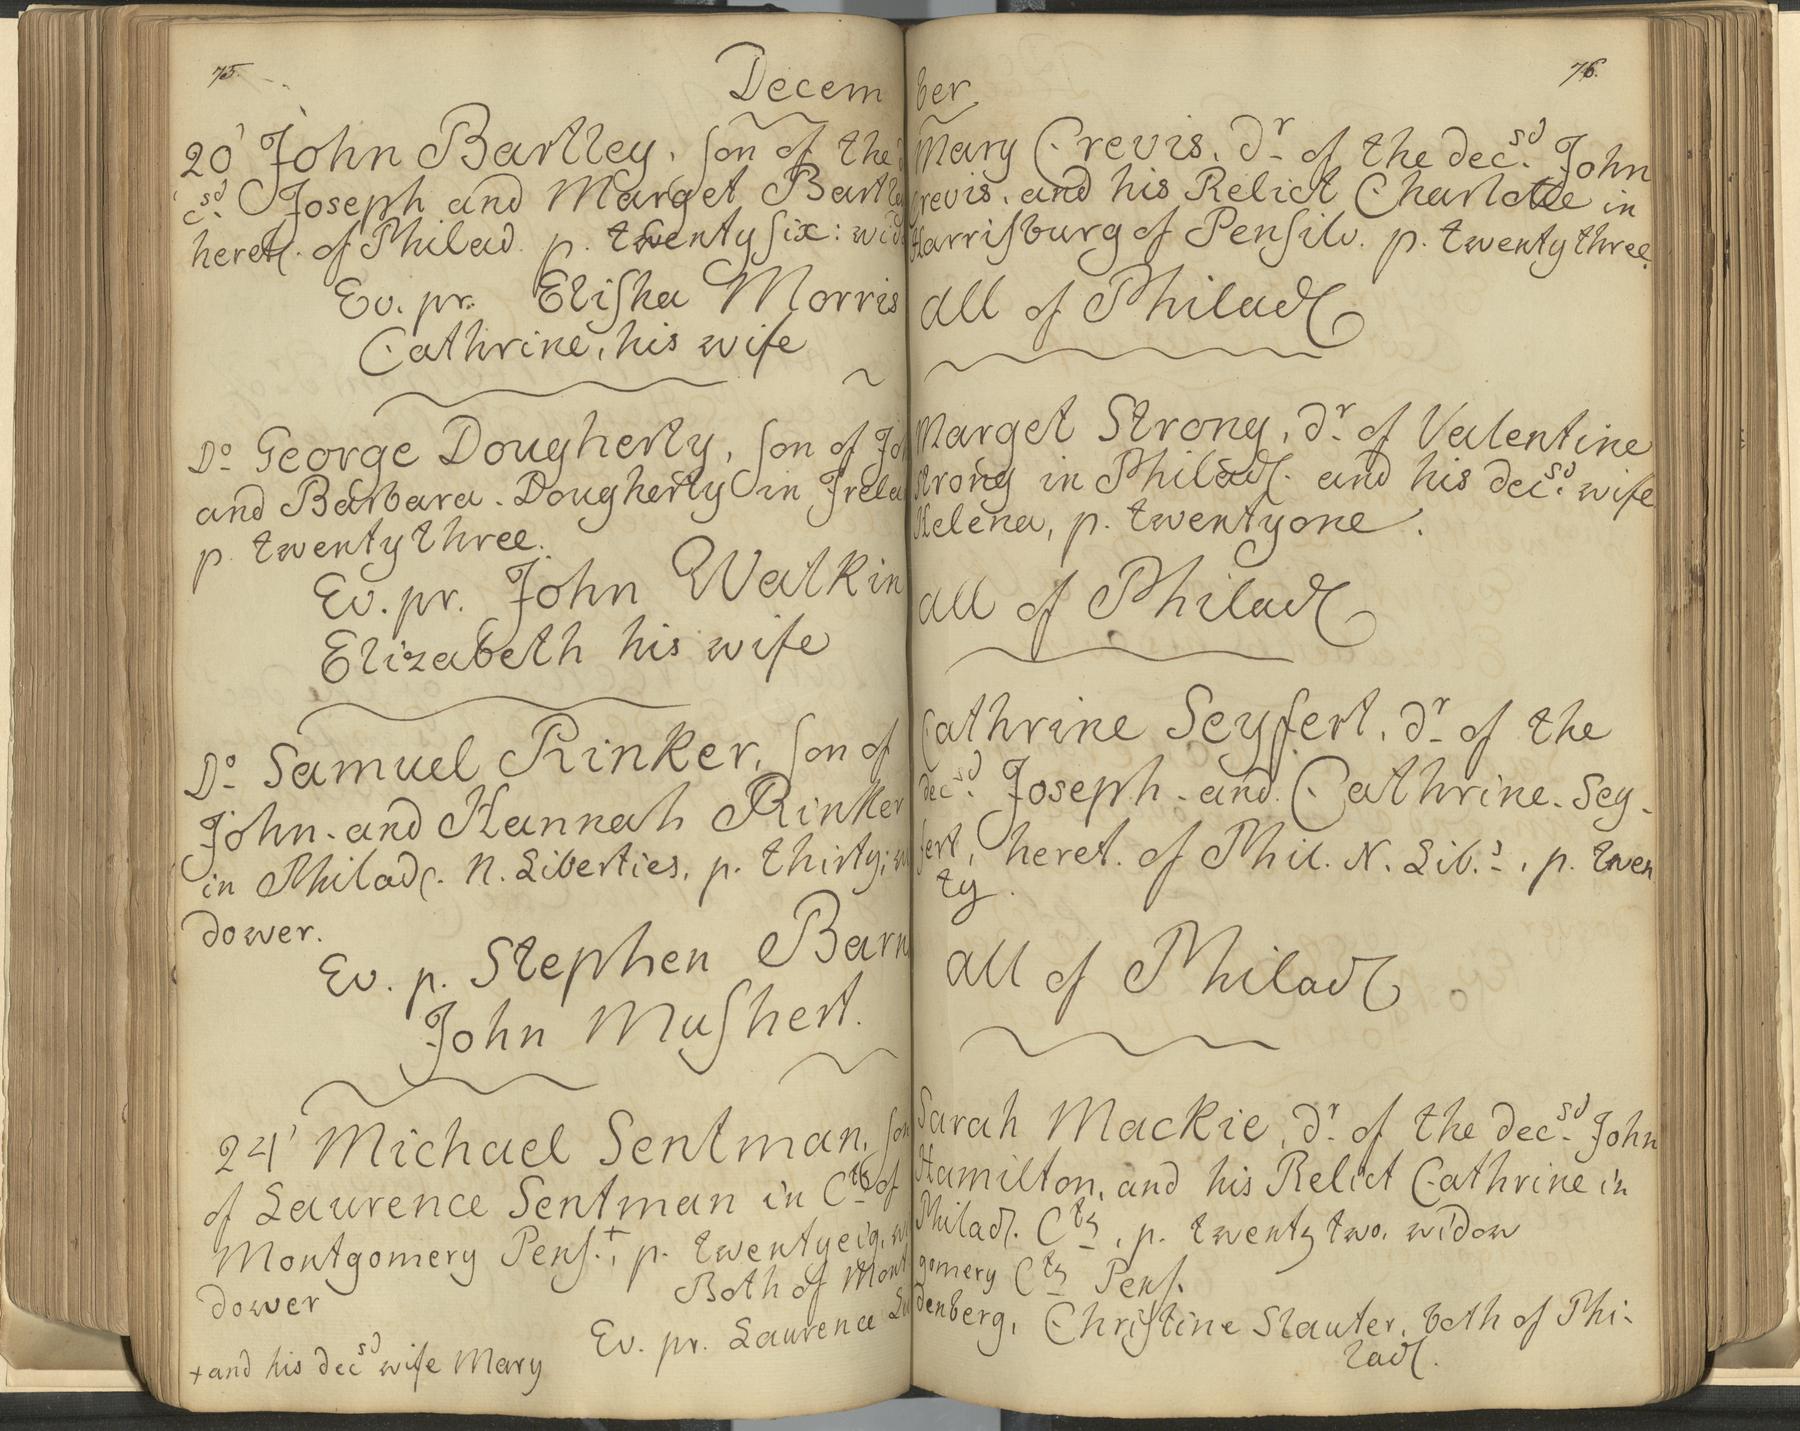 75.
Decem
20 John Bartley, son of the
csd. Joseph and Marget Bartle
heret. of Philad. p. twenty six: wid
Ev. pr. Elisha Morris
Cathrine, his wife
Do. George Dougherty, son of Jo
and Barbara. Dougherty in Irela
p. twenty three.
Ev. pr. John Walkin
Elizabeth his wife
Do. Samuel Rinker, son of
John. and Hannah Rinker
in Philad. N. Liberties, p. thirty; w
dower.
Ev. p. Stephen Barn
John Mushert.
24 Michael Sentman, son
of Laurence Sentman in Cty of
Montgomery Pens.+, p. twentyeig, w
dower
Both of Mont
Ev. pr. Laurence
+and his decsd wife Mary
76.
ber
Mary Crevis, dr. of the decsd. John
Crevis, and his Relict Charlotte in
Harrisburg of Pensilv. p. twenty three.
all of Philad
Marget Strong, dr. of Valentine
Strong in Philad. and his decsd. wife
Helena, p. twentyone.
all of Philad
Cathrine Seyfert, dr. of the
decsd. Joseph. and Cathrine. Sey-
fert, heret. of Phil. N. Lib.s, p. twen
ty.
all of Philad
Sarah Mackie, dr. of the decsd. John
Hamilton, and his Relict Cathrine in
Philad. Cty, p. twenty two. widow
gomery Cty Pens.
denberg, Christine Stauter, both of Phi-
lad.